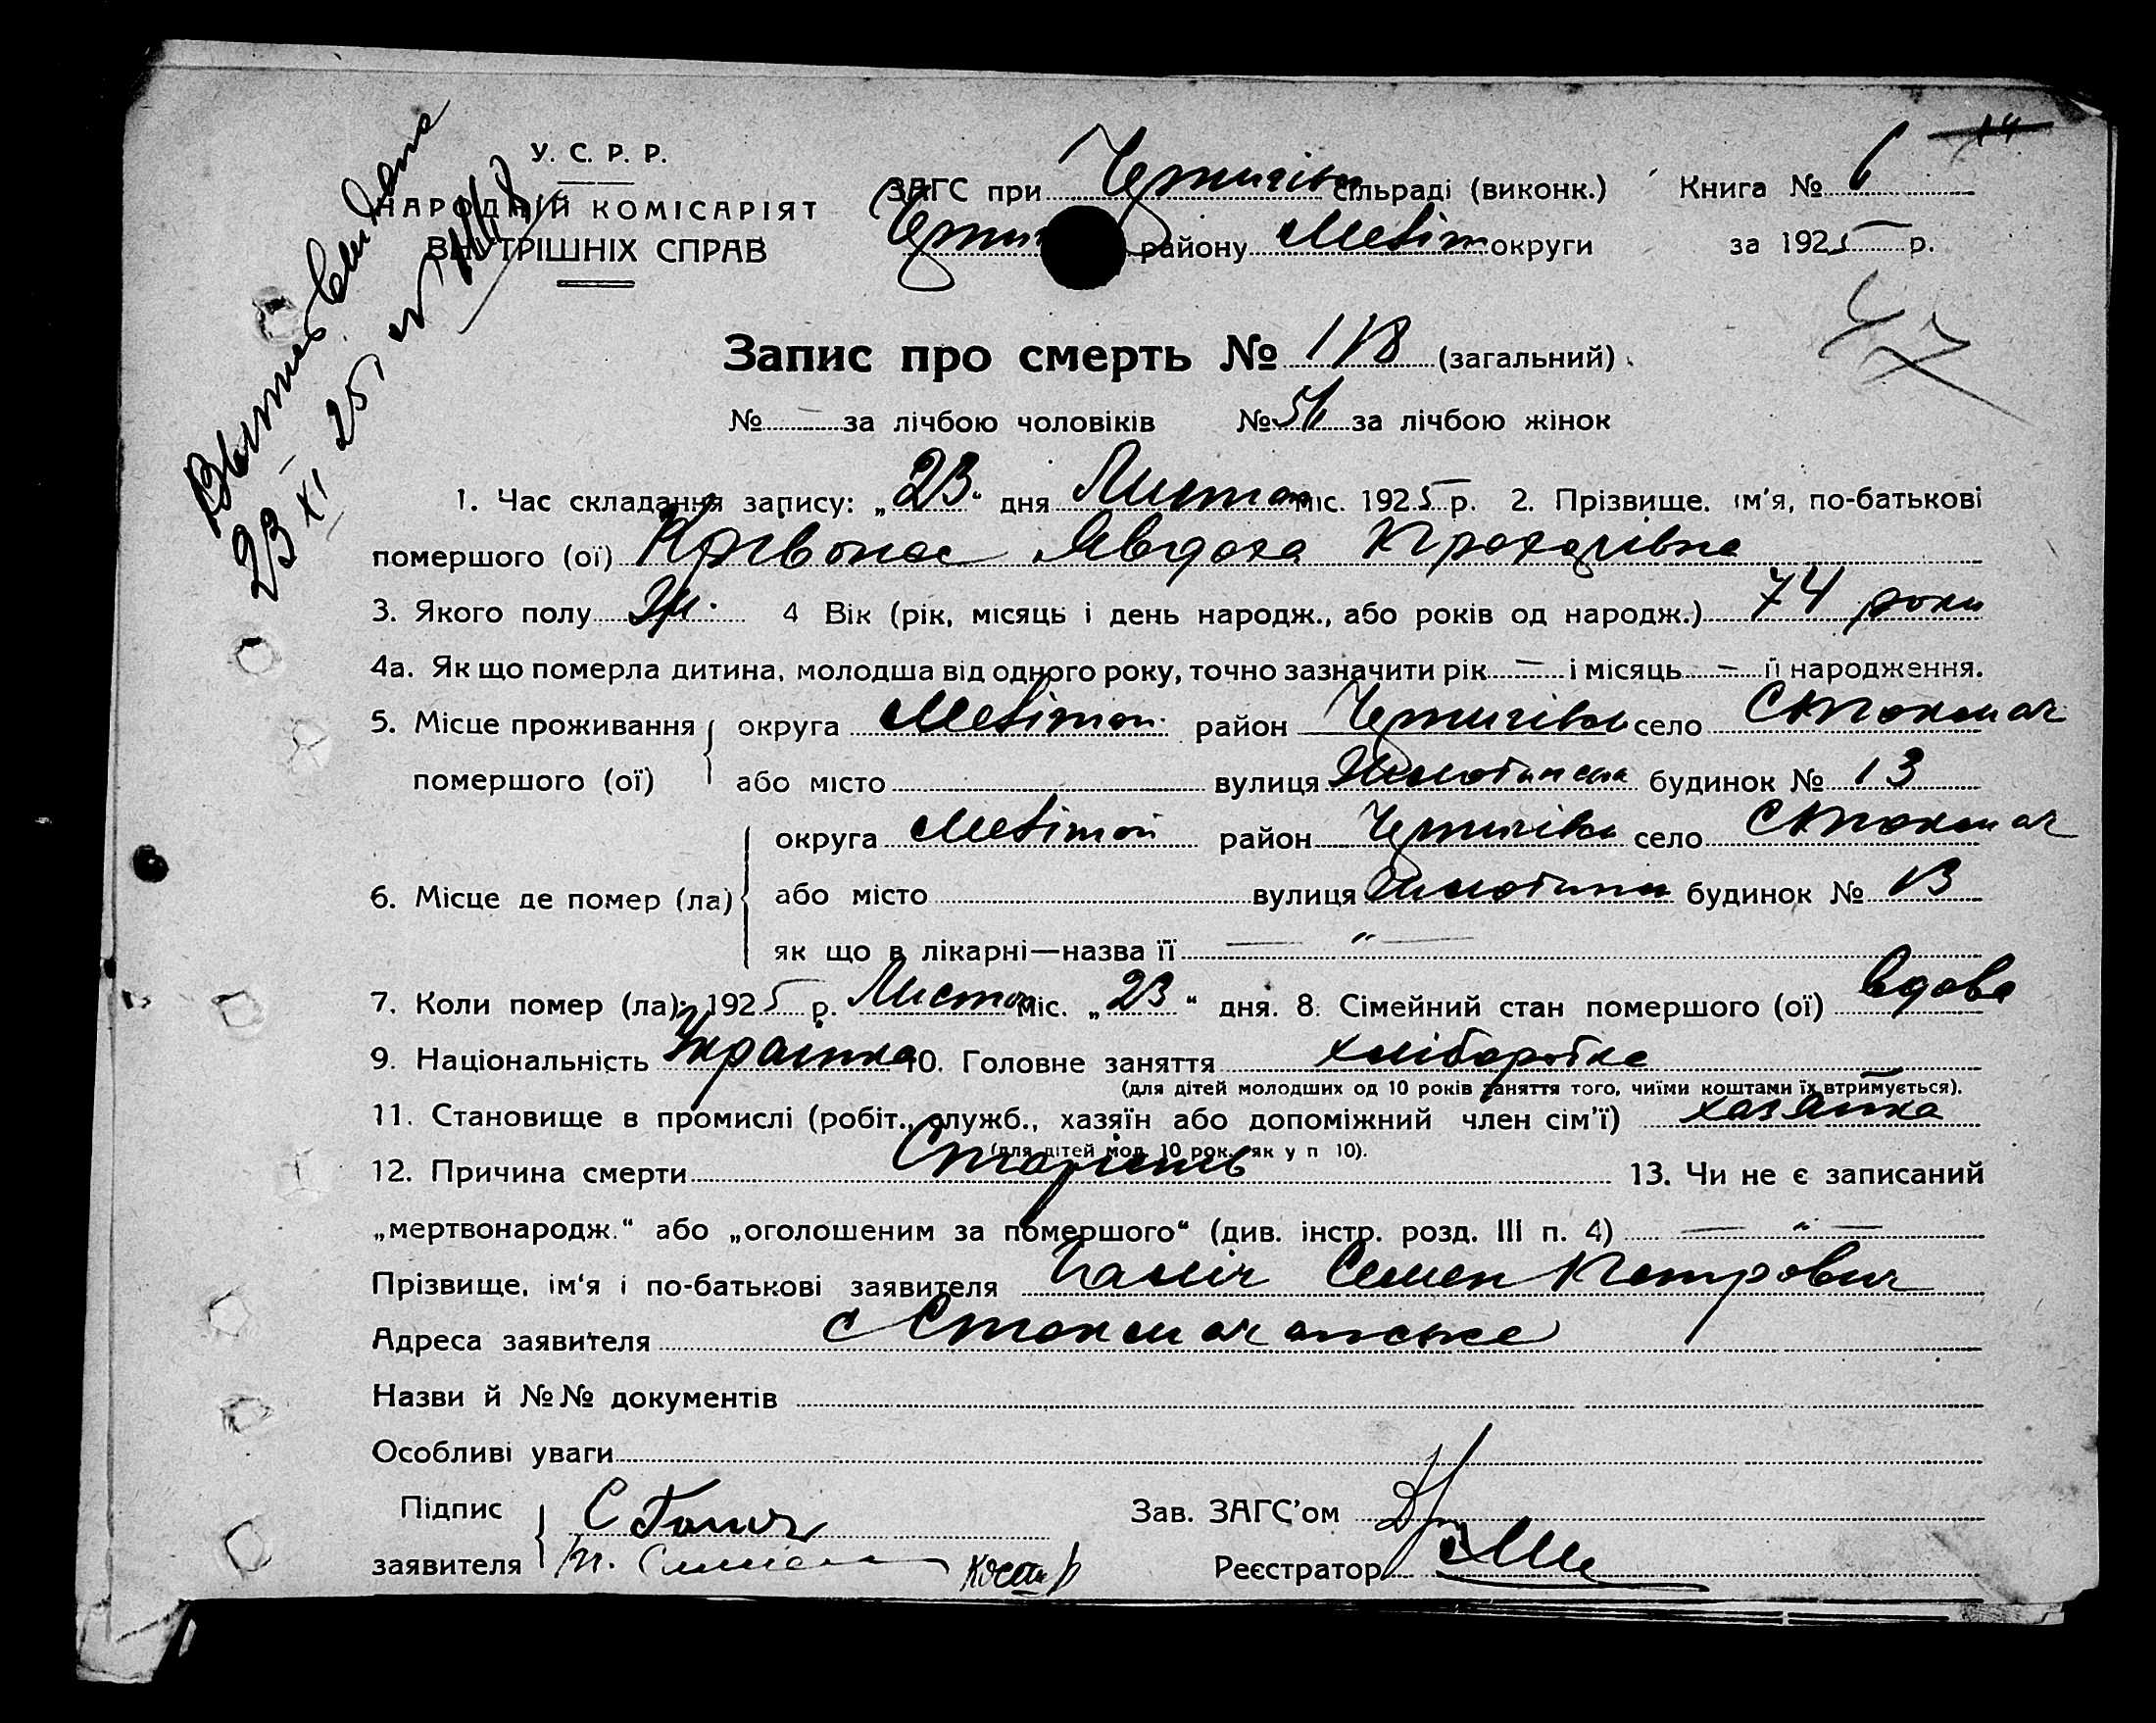 14
У. С. Р. Р.
НАРОДНІЙ КОМІСАРІЯТ
ВНУТРІШНІХ СПРАВ
ЗАГС при Чернигівськ сільраді (виконк.) Книга № 6
району Меліт округи за 1925 р.
47
Запис про смерть № 118 (загальний)
№ — за лічбою чоловіків № 56 за лічбою жінок
1. Час складання запису: „23" дня Листоп міс. 1925 р. 2. Прізвище, ім'я, по-батькові
помершого (ої) Кривонос Явдоха Прохорівна
3. Якого полу ж. 4 Вік (рік, місяць і день народж., або років од народж.) 74 роки
4а. Як що померла дитина, молодша від одного року, точно зазначити рік — і місяць — її народження.
5. Місце проживання округа Мелітоп. район Чернигівськ село Стокопач
помершого (ої) або місто вулиця будинок № 13
округа Мелітоп район Чернигівськ село Стокопач
6. Місце де помер (ла) або місто вулиця будинок № 13
як що в лікарні—назва її — " —
7. Коли помер (ла): 1925 р. Листоп міс. „23" дня. 8. Сімейний стан помершого (ої) вдова
9. Національність Українка 10. Головне заняття хліборобка
(для дітей молодших од 10 років заняття того, чиїми коштами їх втримується).
11. Становище в промислі (робіт., служб., хазяїн або допоміжний член сім'ї) хазяйка
(для дітей мол. 10 рок. як у п 10).
12. Причина смерти Старість 13. Чи не є записаний
„мертвонародж." або „оголошеним за помершого" (див. інстр. розд. III п. 4) — " —
Прізвище, ім'я і по-батькові заявителя Галич Семен Петрович
Адреса заявителя с
Назви й №№ документів
Особливі уваги
Підпис С Галич Зав. ЗАГС'ом
заявителя Реєстратор
Выпись выдана
23 XI 25